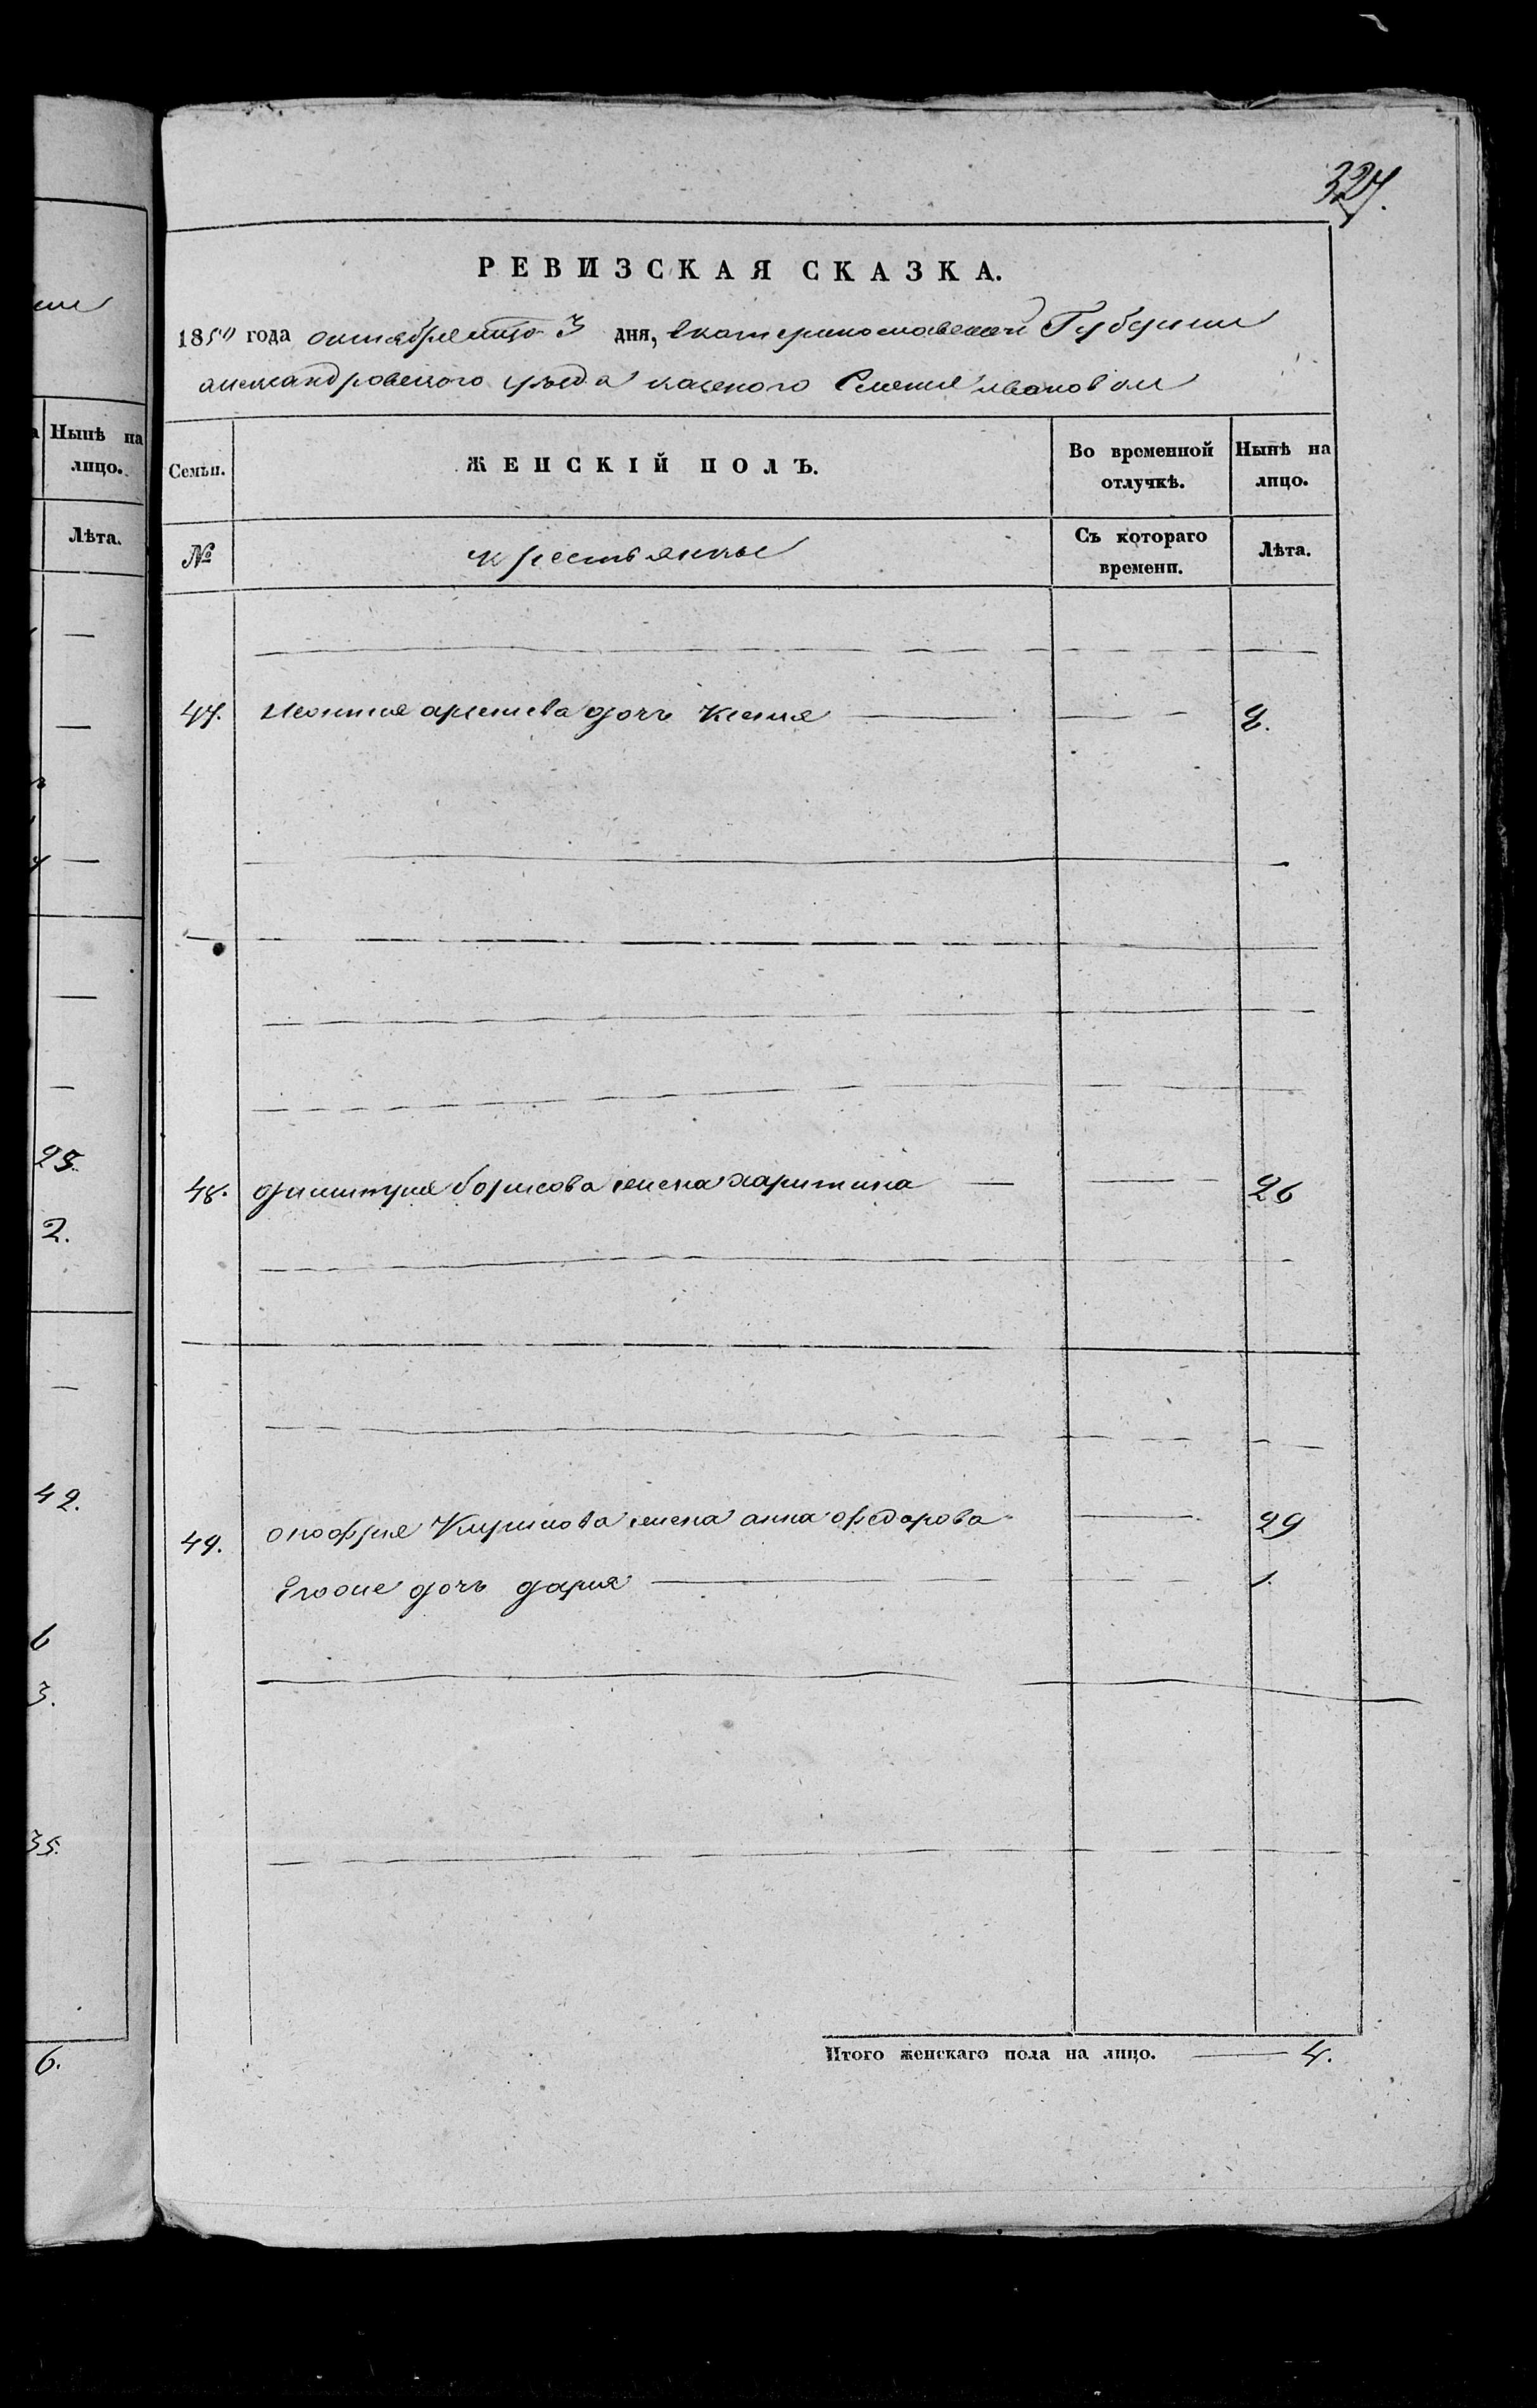 327.
РЕВИЗСКАЯ СКАЗКА.
1850 года октября 3 дня, Екатеринославской Губернии
александровского уезда казеного Селения ивановки
Семьи.
ЖЕНСКІЙ ПОЛЪ.
Во временной отлучкѣ.
Нынѣ на лицо.
№
крестьянки
Съ котораго времени.
Лѣта.
47. Леонтия дочь Ксения 2.
48. дмитрия борисова жена харитина 26
49. онофрия Кирилова жена анна федорова 29
Егоже дочь дария 1.
Итого женскаго пола на лицо. 4.
Нынѣ на
лицо.
Лѣта.
25.
2.
42.
6
3.
35.
6.